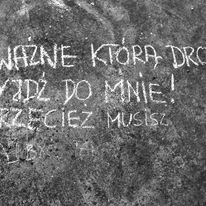 WAŻNE KTÓRĄ DRO
YJDŹ DO MNIE!
RZECIEŻ MUSISZ